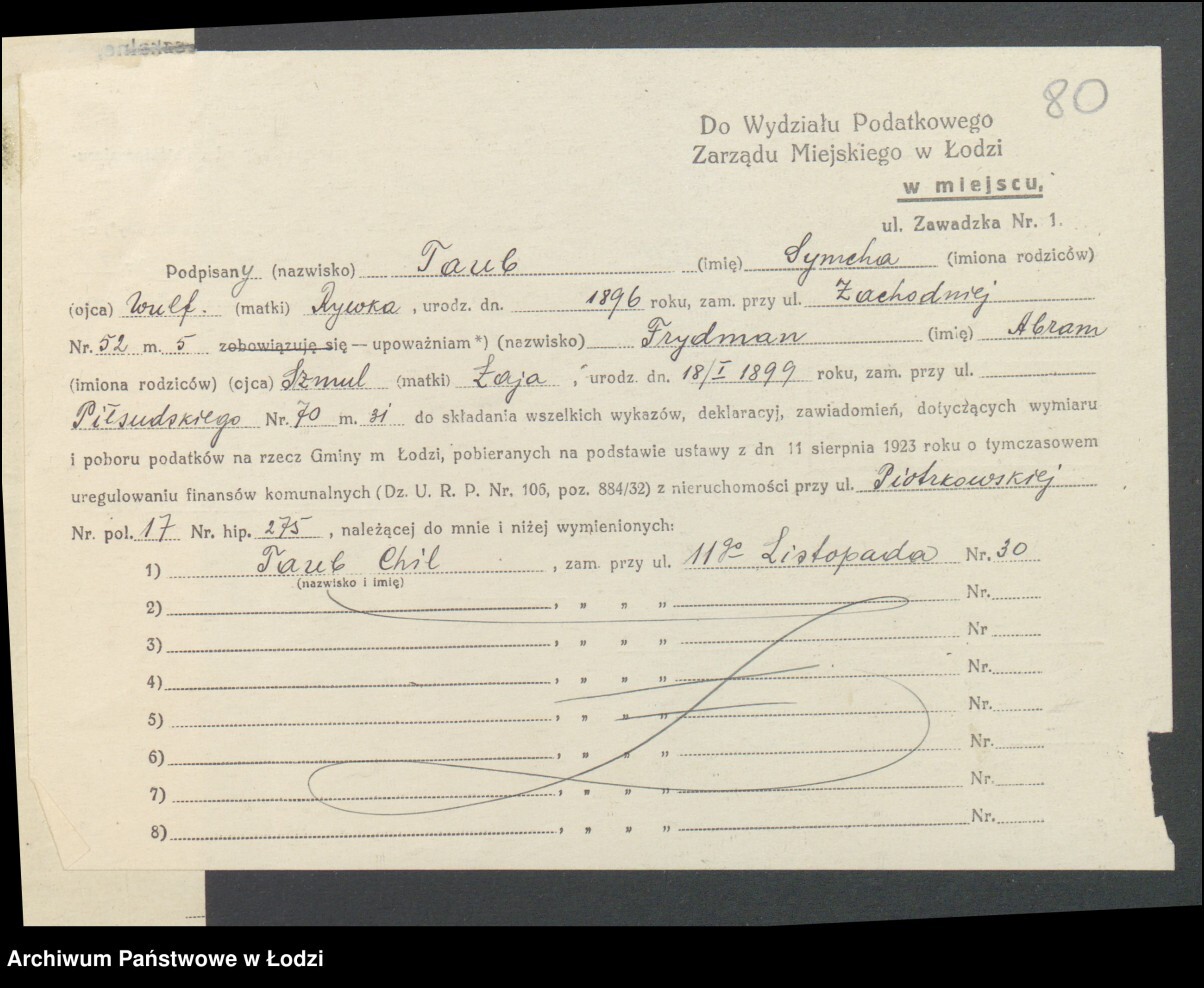 80
Do Wydziału Podatkowego
Zarządu Miejskiego w Łodzi
w miejscu,
ul. Zawadzka Nr. 1.
Podpisany (nazwisko) Taub (imię) Symcha (imiona rodziców)
(ojca) Wulf. (matki) Rywka, urodz. dn. 1896 roku, zam. przy ul. Zachodniej
Nr. 52 m. 5 zobowiązuję się — upoważniam *) (nazwisko) Frydman (imię) Abram
(imiona rodziców) (ojca) Szmul (matki) Łaja, urodz. dn. 18/I 1899 roku, zam. przy ul.
Piłsudskiego Nr. 70 m. 31 do składania wszelkich wykazów, deklaracyj, zawiadomień, dotyczących wymiaru
i poboru podatków na rzecz Gminy m Łodzi, pobieranych na podstawie ustawy z dn 11 sierpnia 1923 roku o tymczasowem
uregulowaniu finansów komunalnych (Dz. U. R. P. Nr. 106, poz. 884/32) z nieruchomości przy ul. Piotrkowskiej
Nr. pol. 17 Nr. hip. 275, należącej do mnie i niżej wymienionych:
1) Taub Chil, zam. przy ul. 11go Listopada Nr. 30
(nazwisko i imię)
2) , „ „ „ Nr.
3) , „ „ „ Nr
4) , „ „ „ Nr.
5) , „ „ „ Nr.
6) , „ „ „ Nr.
7) , „ „ „ Nr.
8) , „ „ „ Nr.
Archiwum Państwowe w Łodzi